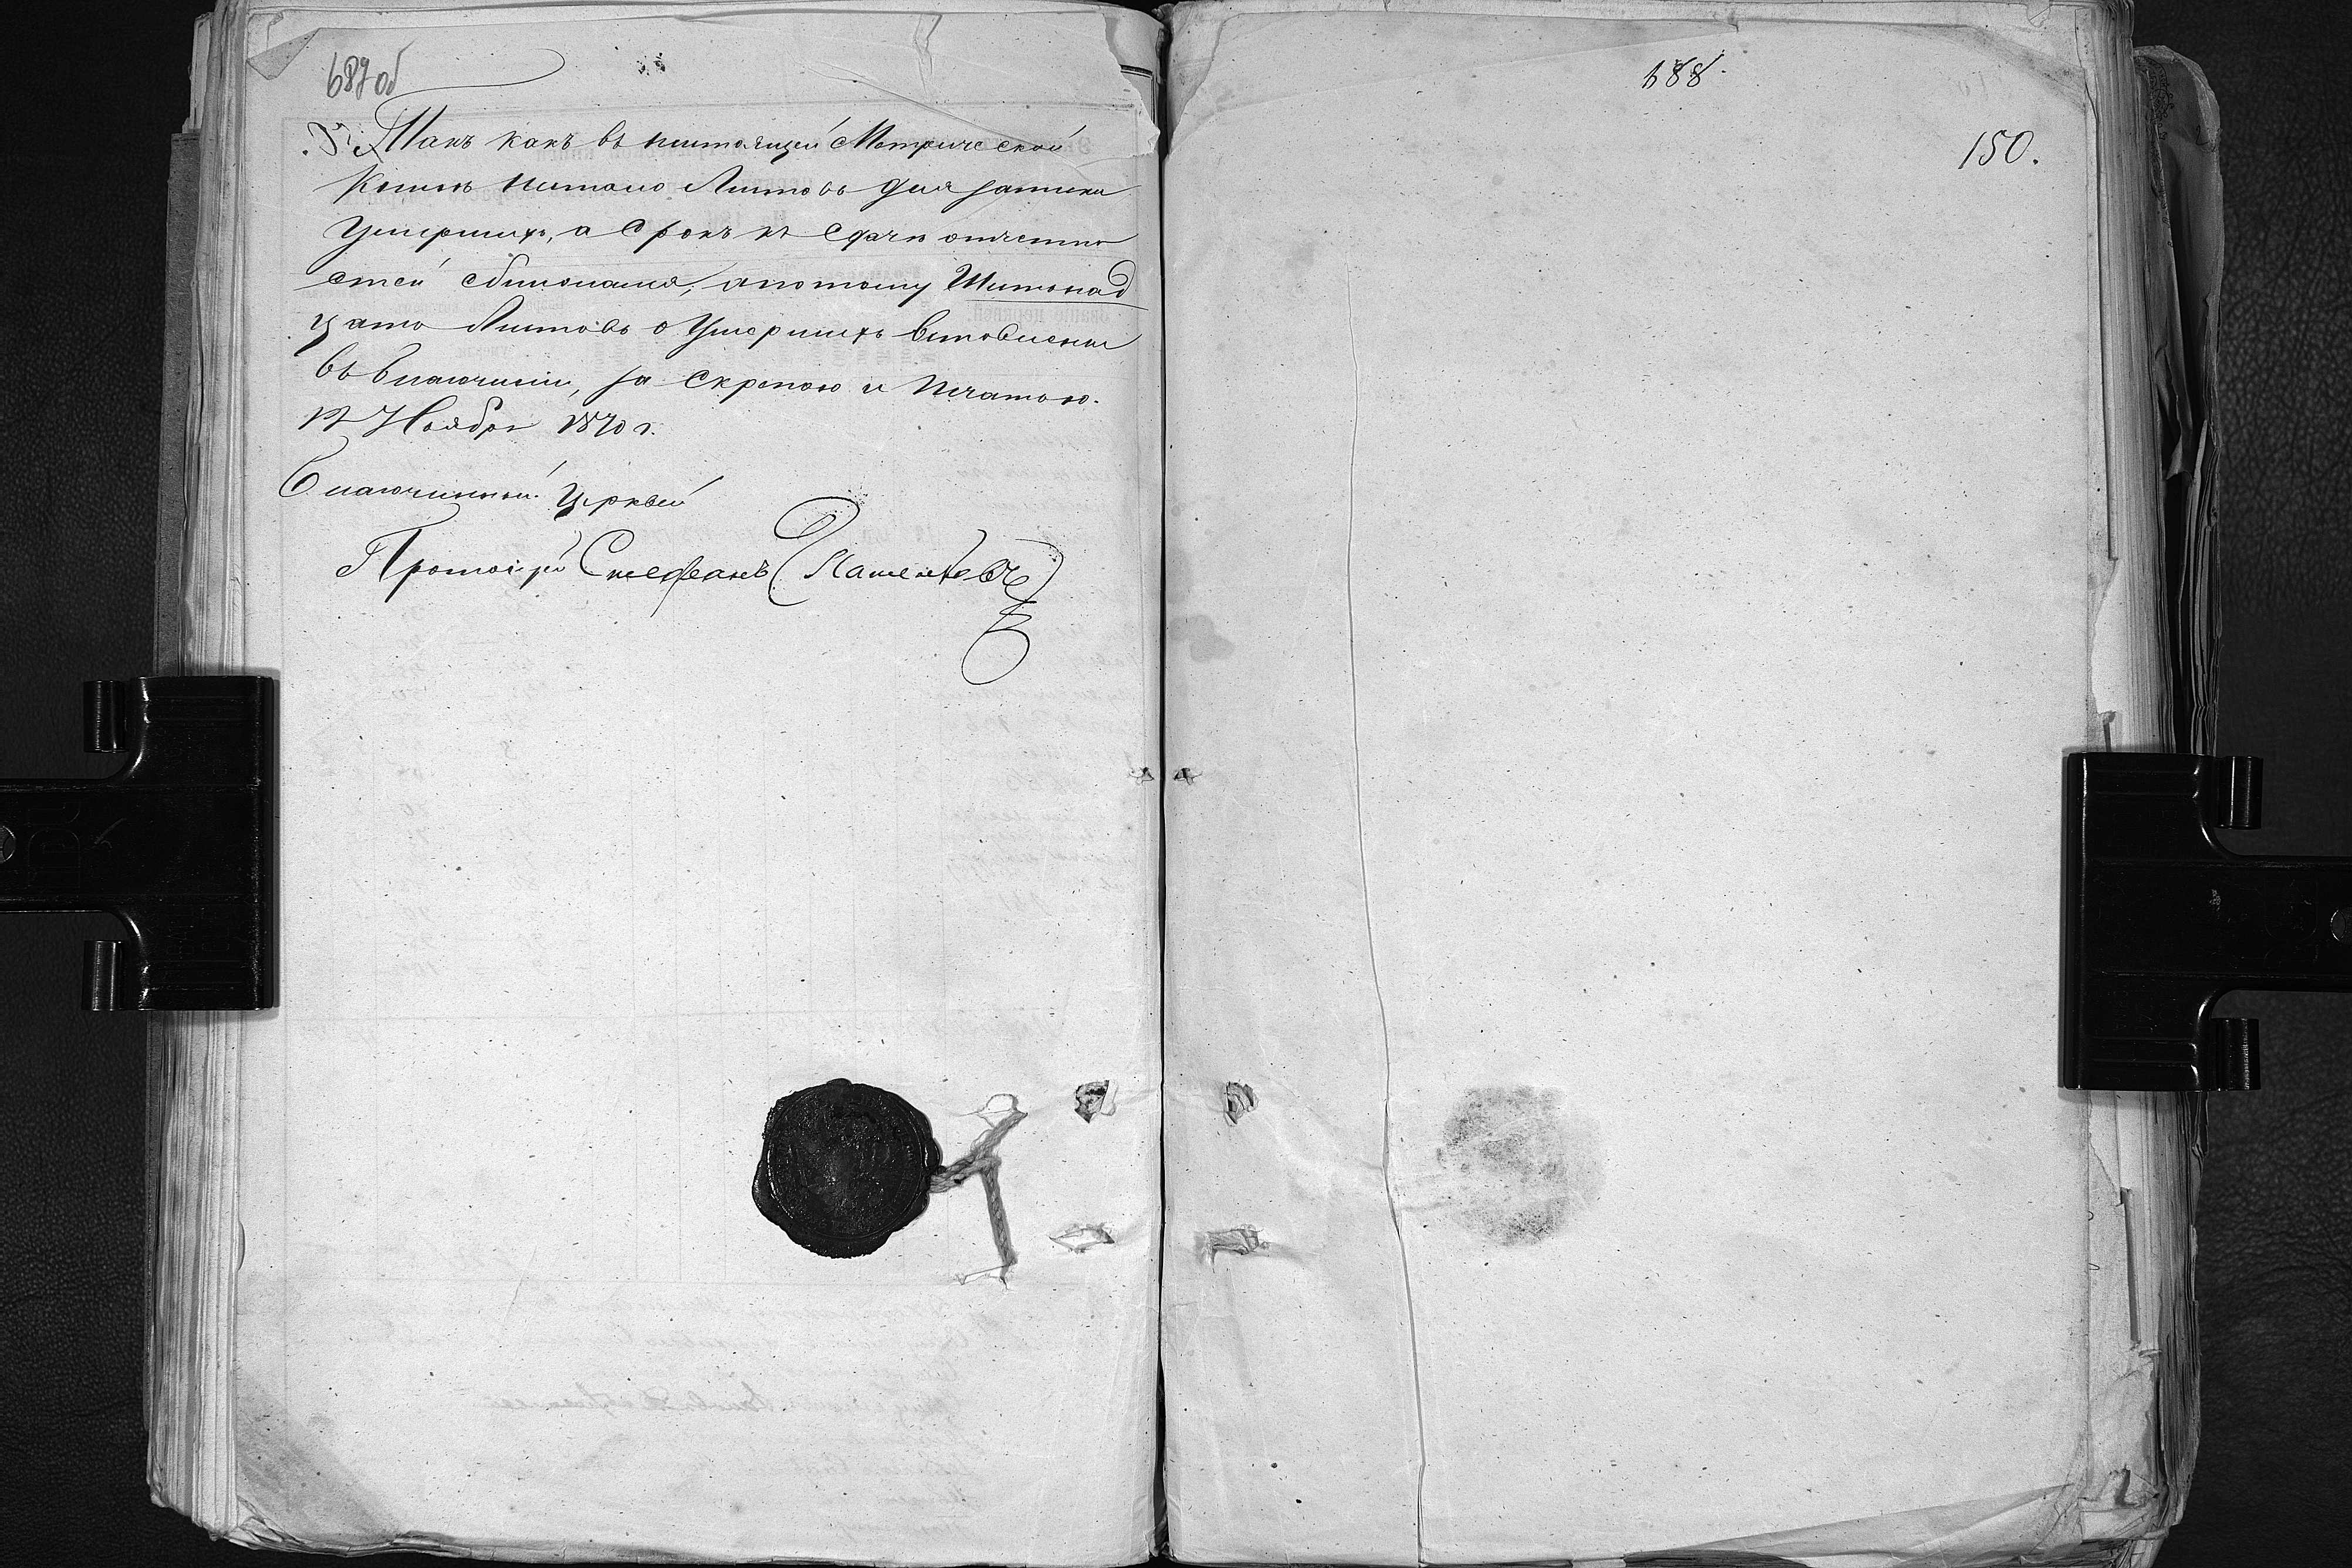 687 об
Такъ какъ въ настоящей Метрической
Книгѣ нестало Листовъ для записи
Умершихъ, а Срокъ къ Сдачѣ отчетно
стей сближался, а потому Шестнад
цать Листовъ о Умершихъ вставлены
въ Благочинiи, за Скрепою и Печатью.
12 Ноября 1870 г.
Благочинный Церквей
Протоiерей Стефанъ
688.
150.